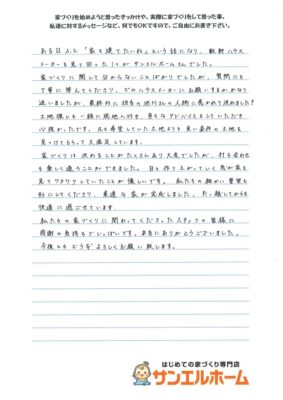 家づくりを始めようと思ったきっかけや、実際に家づくりをして思った事、
私達に対するメッセージなど、何でもOKですので、ご自由にお書き下さい。
ある日ふと「家を建てたいね」という話になり、数軒ハウス
メーカーを見て回った1つがサンエルホームさんでした。
家づくりに関して分からないことばかりでしたが、質問にも
丁寧に答えてくださり、どのハウスメーカーにお願いするかかなり
迷いましたが、最終的に担当の池村さんの人柄に惹かれて決めました!
土地探しも一緒に現地へ回り、色々なアドバイスをしていただき
心強かったです。元々希望していた土地よりも良い条件の土地を
見つけてもらって大満足しています。
家づくりは決めることがたくさんあり大変でしたが、打ち合わせ
も楽しく通うことができました。日々作り上がっていく我が家を
見てワクワクしていたことが懐しいです。私たちの細かい要望も
形にしてくださり、素適な家が完成しました。引っ越してからも
快適に過ごせています。
私たちの家づくりに関わってくださったスタッフの皆様に
感謝の気持ちでいっぱいです。本当にありがとうございました。
今後ともどうぞよろしくお願い致します。
はじめての家づくり専門店
サンエルホーム